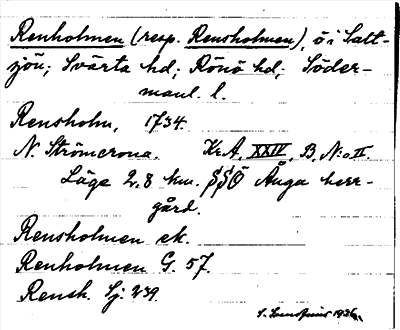 Renholmen (resp. Rensholmen), ö i Salt-
sjön; Svärta hd; Rönö hd; Söder-
manl. l.
Rensholm, 1734.
N. Strömcrona. Kr.A. XXIV, B, N:o II.
Läge 2.8 km. SSÖ Ånga herr-
gård.
Rensholmen ek.
Renholmen G. 57.
Rensh. Sj. 239.
1936